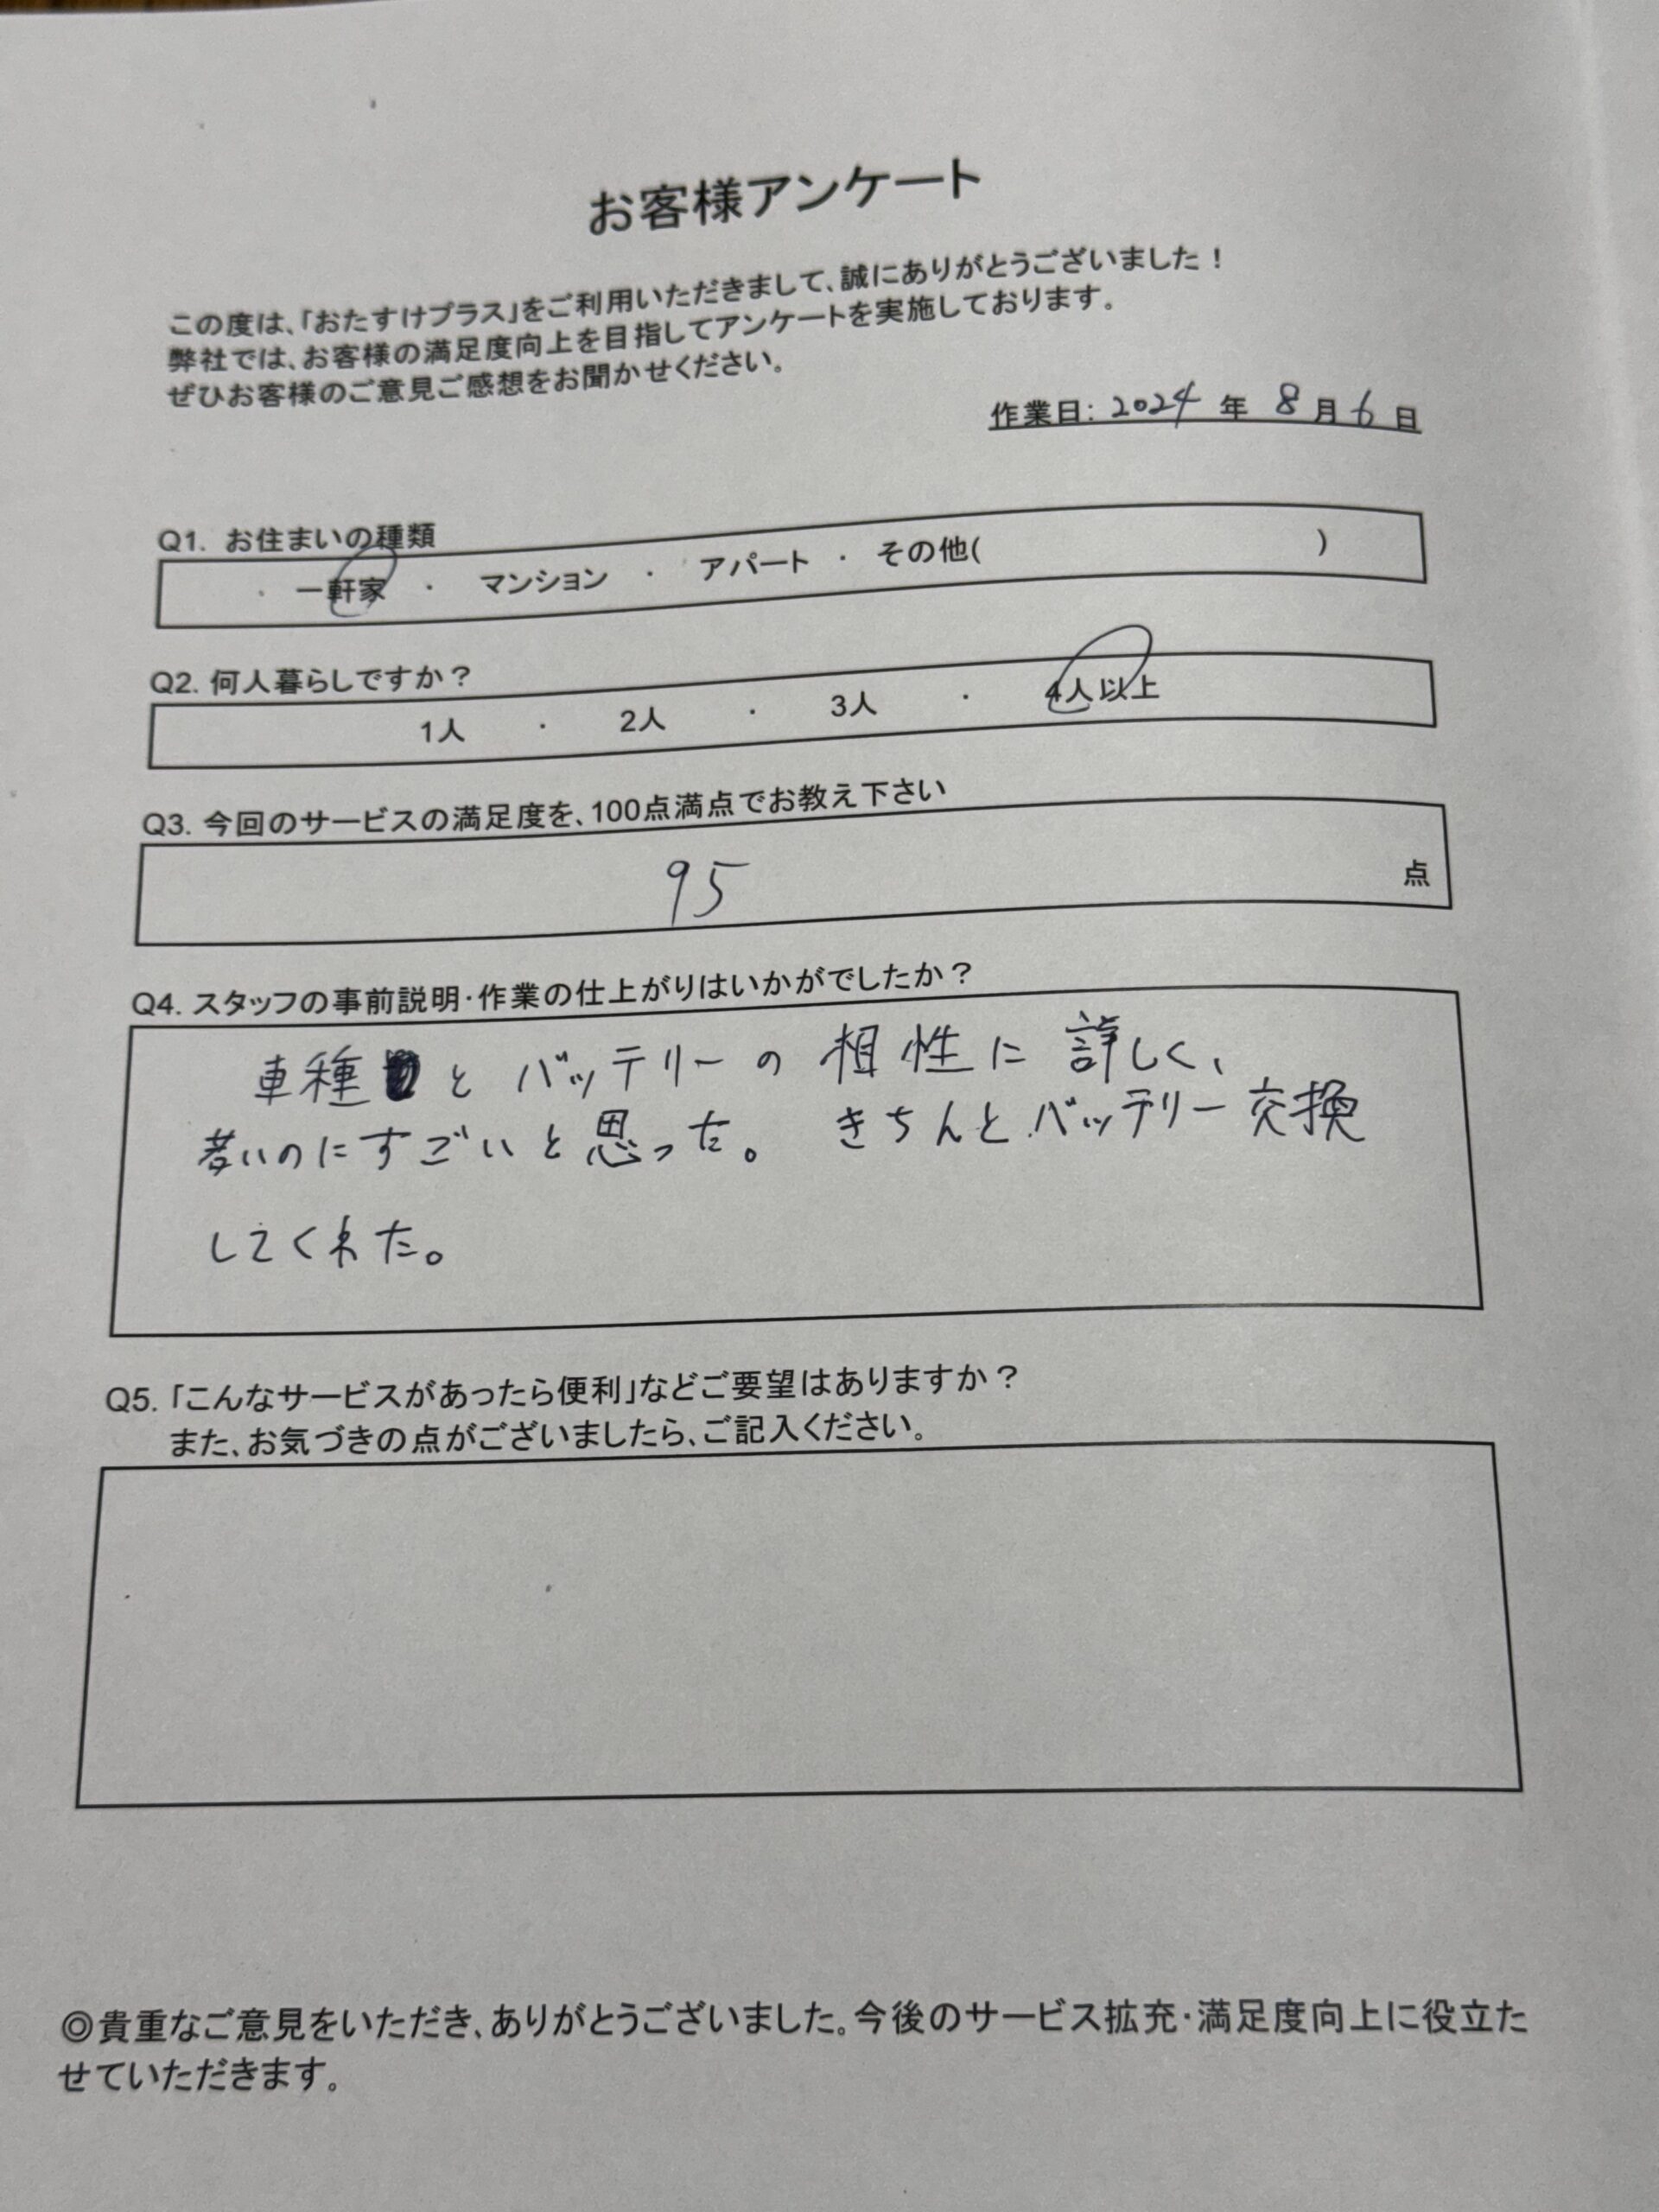 お客様アンケート
この度は、「おたすけプラス」をご利用いただきまして、誠にありがとうございました！
弊社では、お客様の満足度向上を目指してアンケートを実施しております。
ぜひお客様のご意見ご感想をお聞かせください。
作業日: 2024 年 8 月 6 日
Q1. お住まいの種類
一軒家 ・ マンション ・ アパート ・ その他( )
Q2. 何人暮らしですか？
1人 ・ 2人 ・ 3人 ・ 4人以上
Q3. 今回のサービスの満足度を、100点満点でお教え下さい
95 点
Q4. スタッフの事前説明・作業の仕上がりはいかがでしたか？
車種とバッテリーの相性に詳しく、
若いのにすごいと思った。きちんとバッテリー交換
してくれた。
Q5. 「こんなサービスがあったら便利」などご要望はありますか？
また、お気づきの点がございましたら、ご記入ください。
◎貴重なご意見をいただき、ありがとうございました。今後のサービス拡充・満足度向上に役立た
せていただきます。